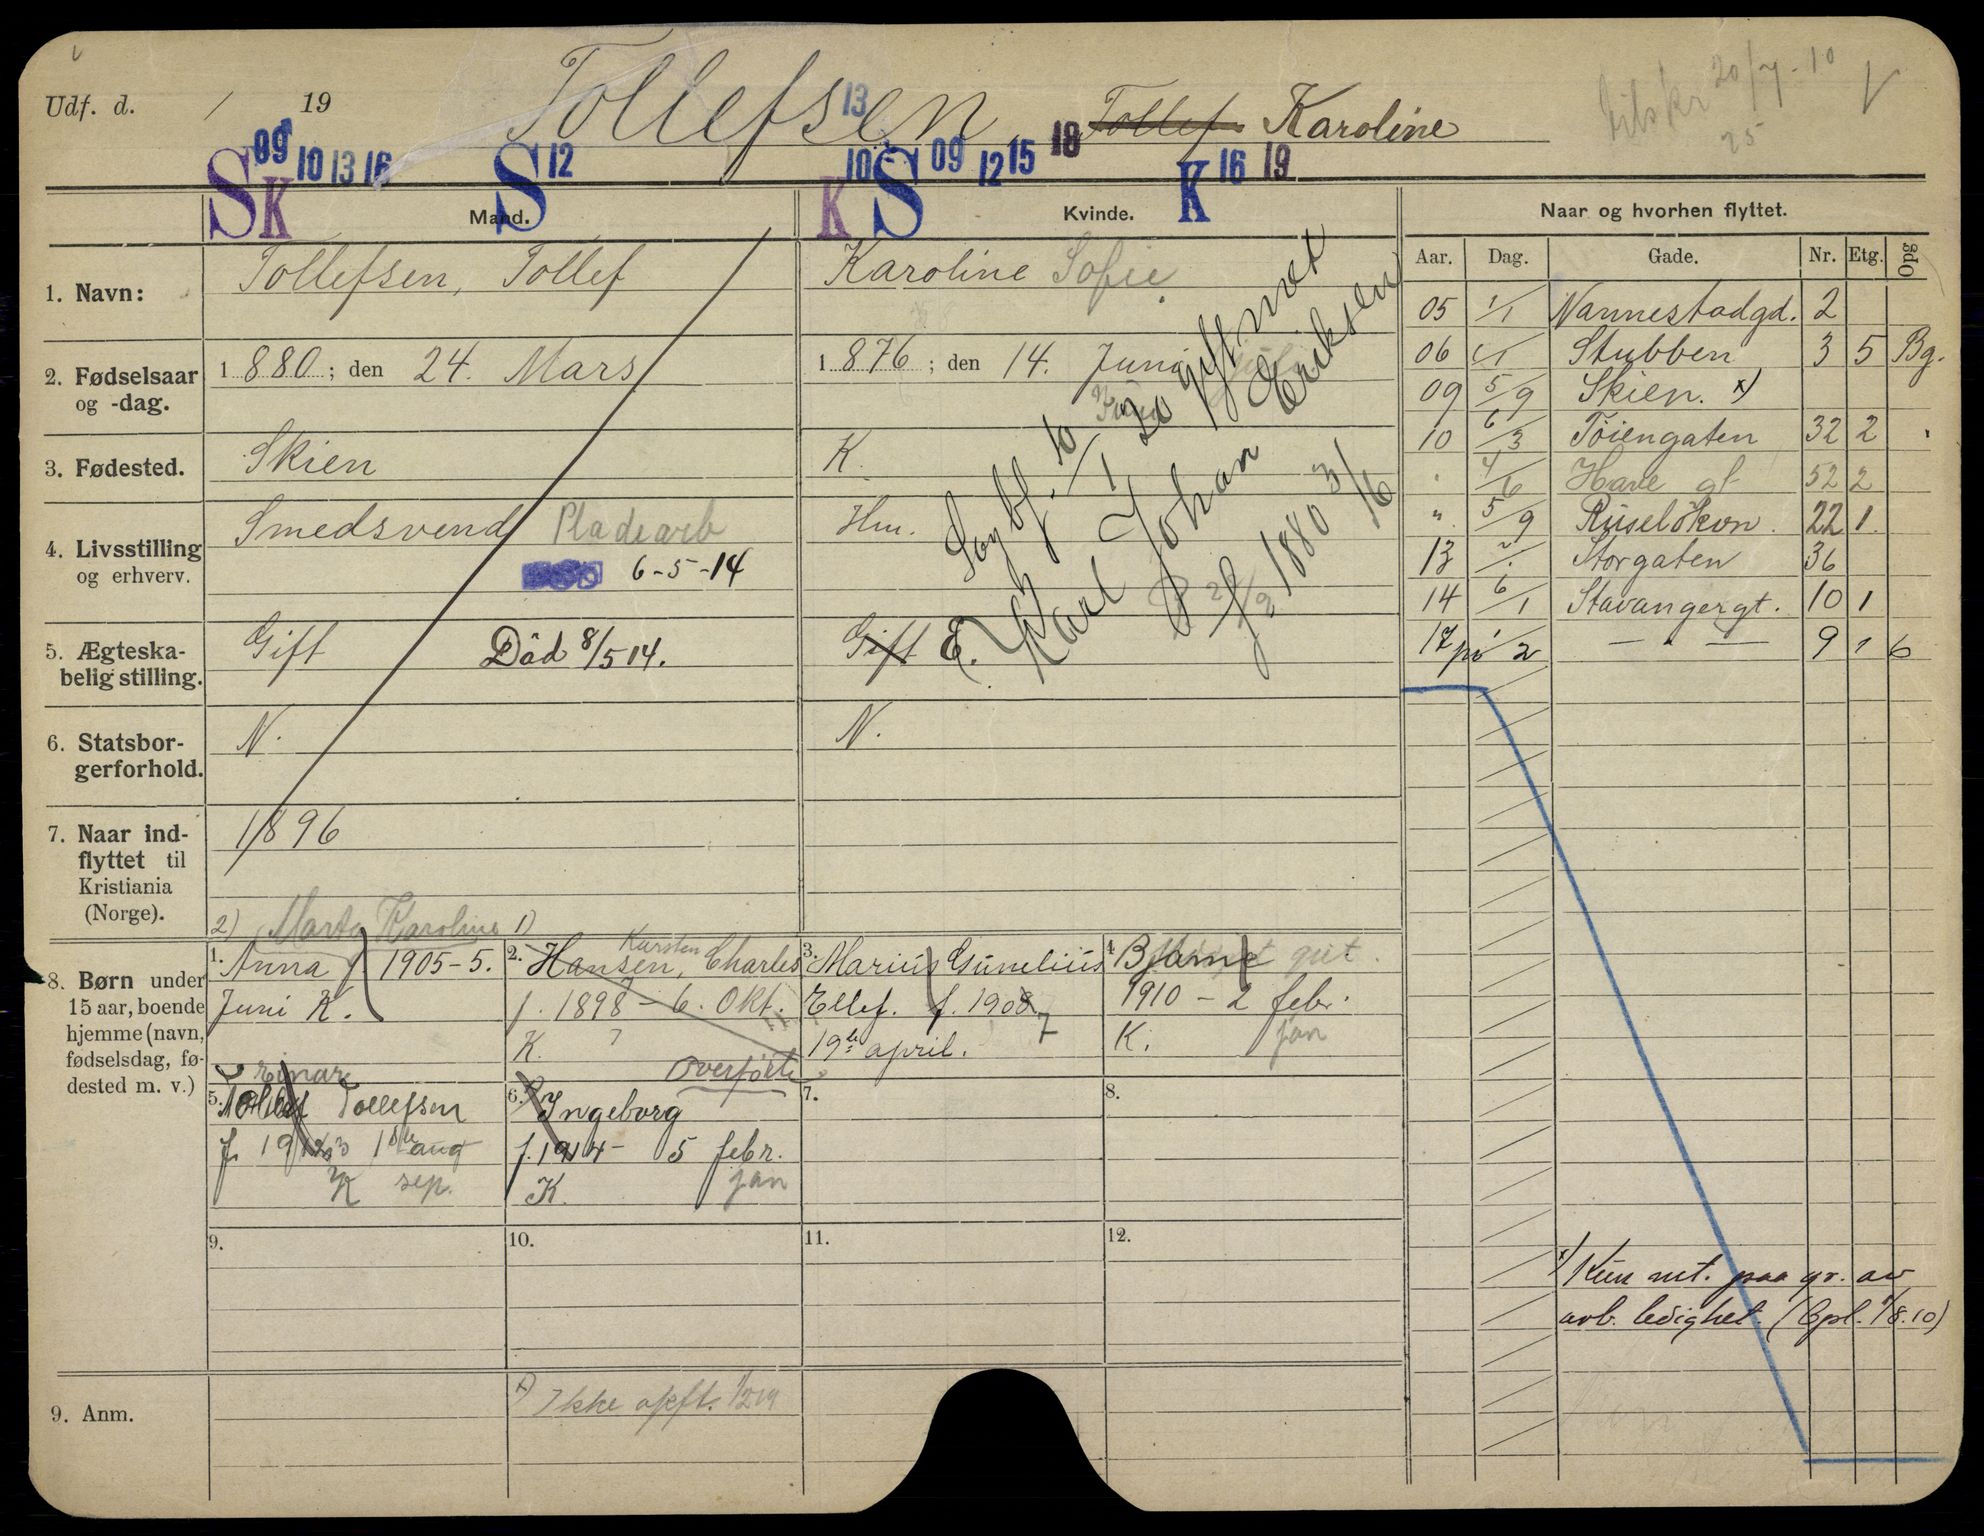 Udf. d. / 19
Tollefsen Tollef Karoline
20/7-10
25
13
S K 09 10 13 16 S 12 K 10 S 09 12 15 18 K 16 19
Mand. Kvinde. Naar og hvorhen flyttet.
Aar. Dag. Gade. Nr. Etg. Opg
1. Navn: Tollefsen, Tollef Karoline Sofie
2. Fødselsaar og -dag. 1880; den 24. Mars 1876; den 14. Juni
3. Fødested. Skien K.
4. Livsstilling og erhverv. Smedsvend Pladearb Hm.
6-5-14
5. Ægteska-belig stilling. Gift Død 8/5 14. Gift E.
6. Statsbor-gerforhold. N. N.
7. Naar ind-flyttet til Kristiania (Norge). 1896
10/1 20 gift m
Karl Johan Eriksen
f. 1880 3/6
05 1/1 Nannestadgd. 2
06 1/1 Stubben 3 5 Bg.
09 5/9 Skien. x)
10 6/3 Tøiengaten 32 2
" 4/6 Have gt 52 2
" 5/9 Ruseløkvn. 22 1.
13 Storgaten 36
14 6/1 Stavangergt. 10 1
17 2 — " — 9 1 6
2) Marta Karoline 1)
8. Børn under 15 aar, boende hjemme (navn, fødselsdag, fødested m. v.)
1. Anna 1905-5.
Juni K.
2. Hansen, Karsten Charles
f. 1898 - 6. Okt.
K.
Overført
3. Marius Gunelius
Ellef. f. 1908 7
19de april.
4. Bjarne gut.
1910 - 2 febr.
K. jan
5. Einar Tollefsen
f. 1912 3 1ste aug
K sep.
6. Ingeborg
f. 1914 - 5 febr.
K. jan
7.
8.
9.
10.
11.
12.
x) Kun mt. paa gr. av
arb. ledighet. (Opl. 1/8.10)
9. Anm. x) Ikke opft. 1/2 19